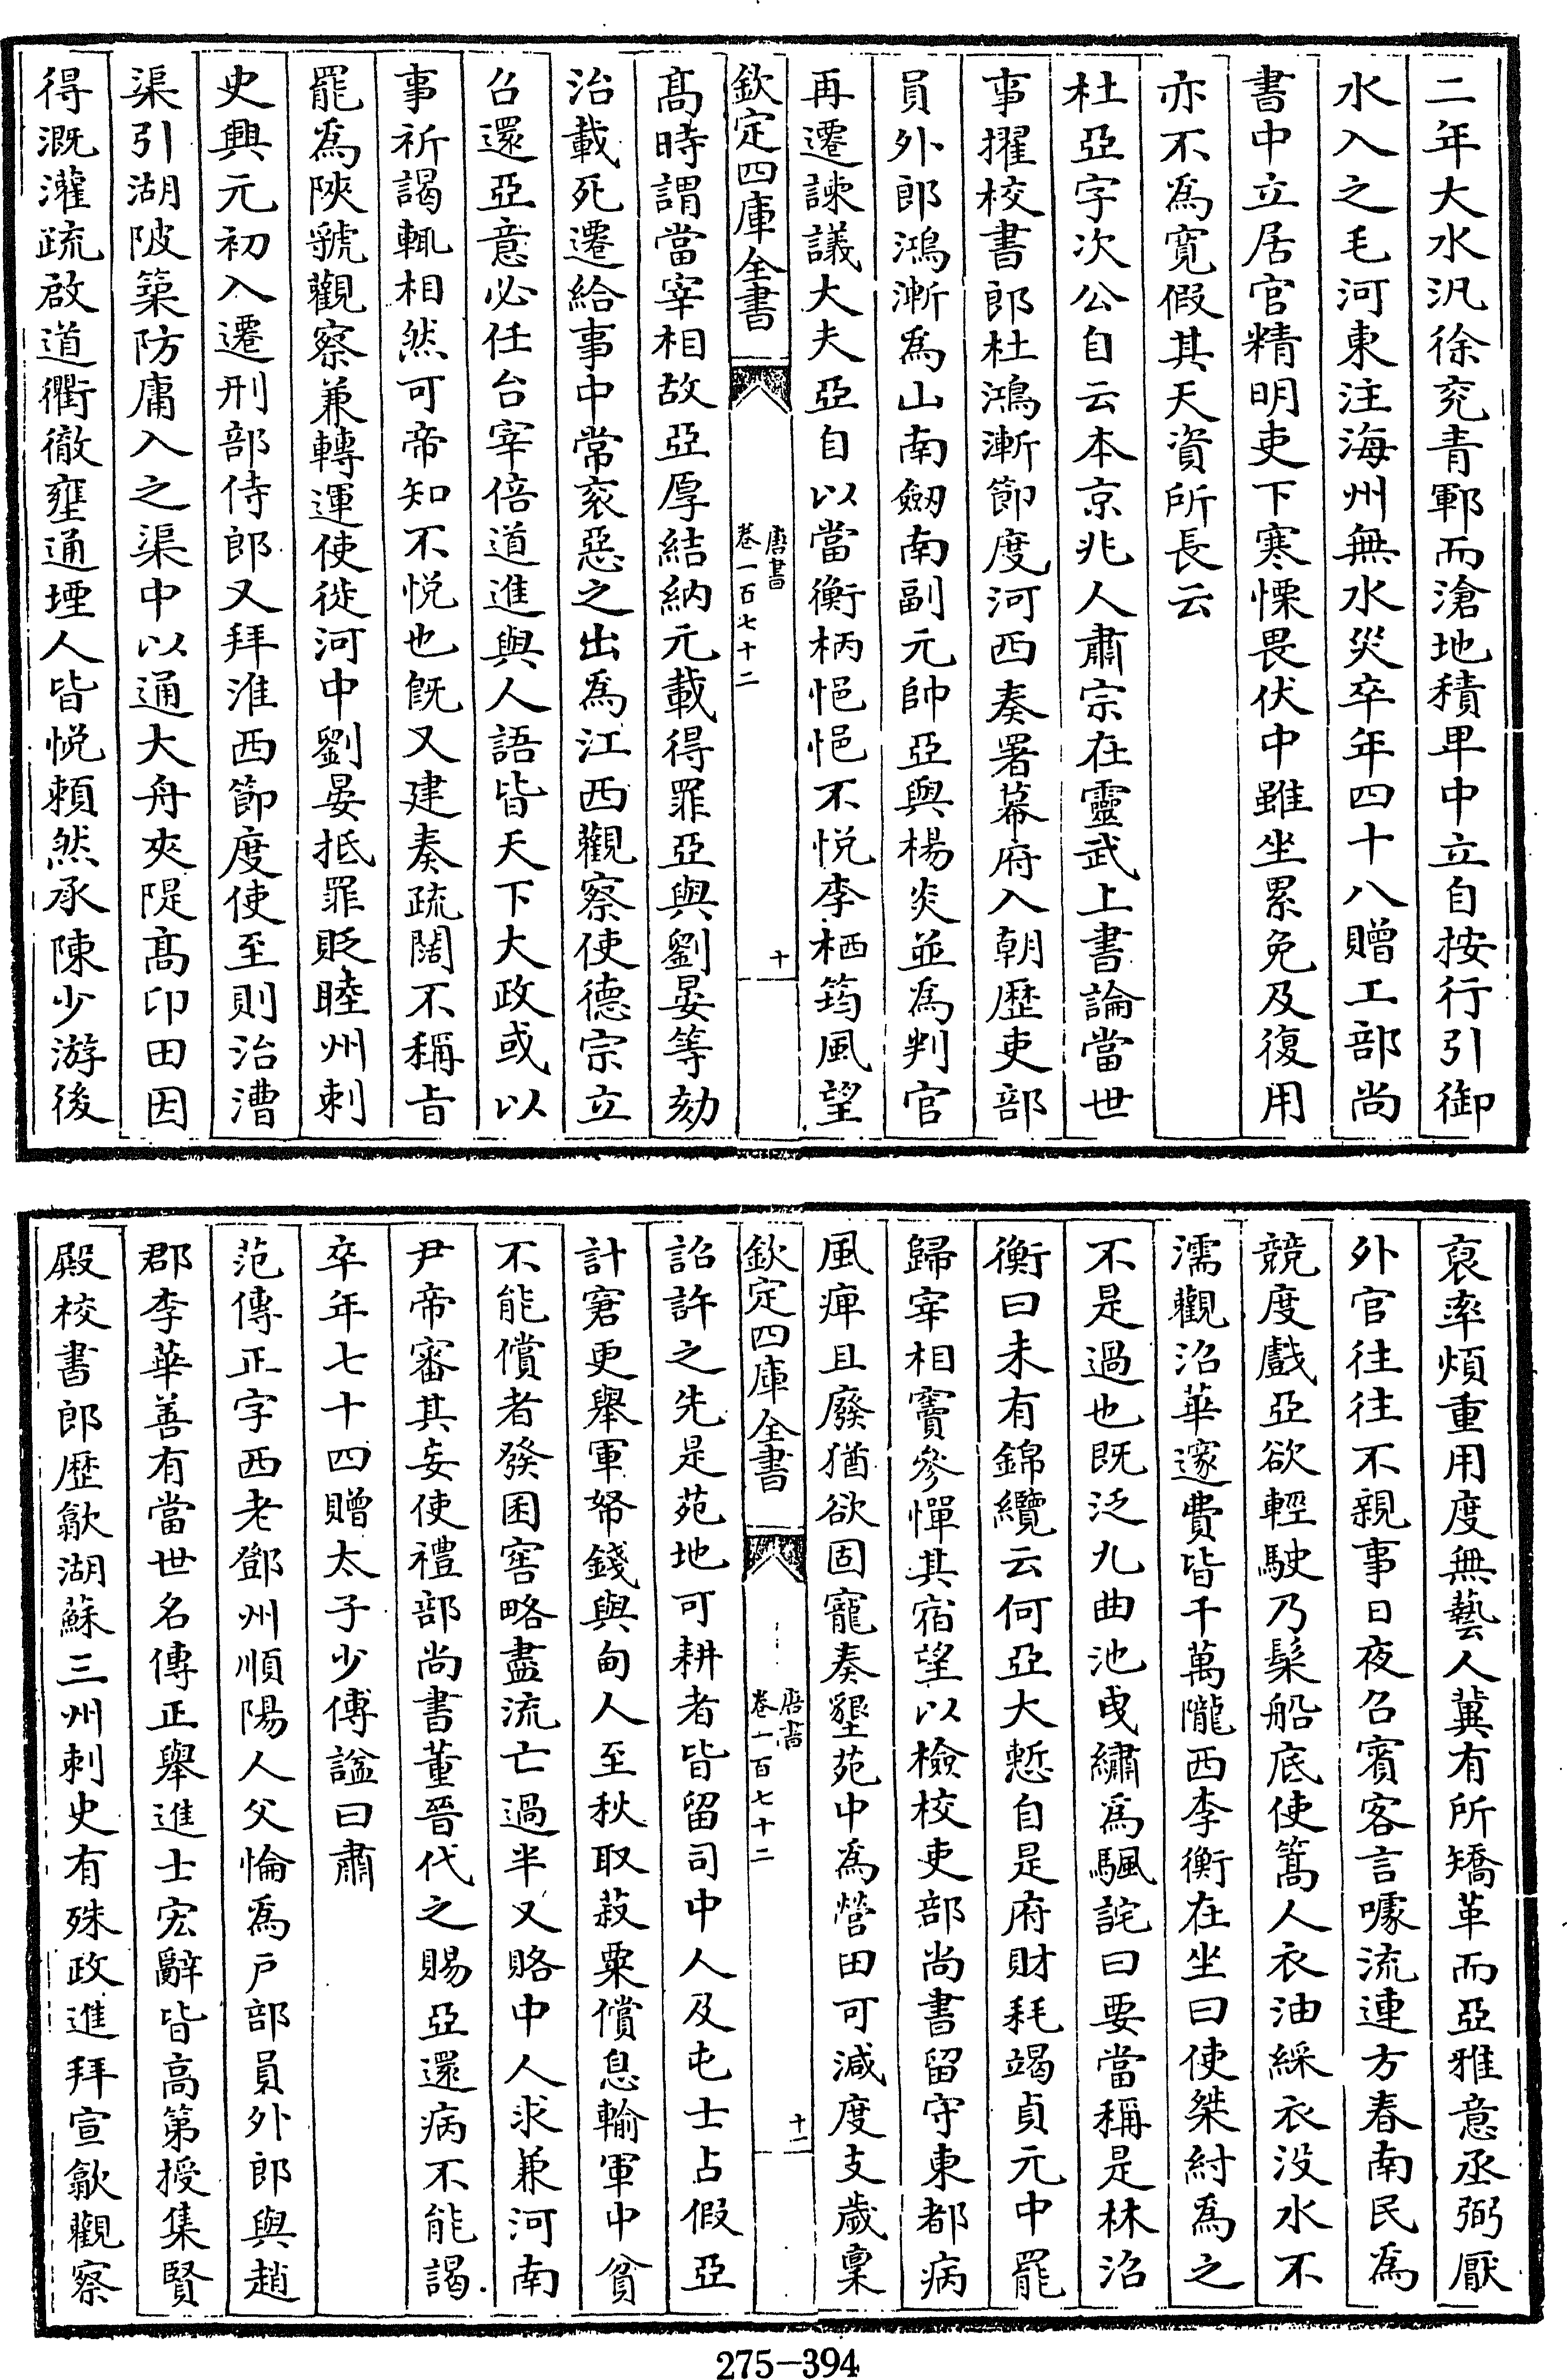 二年大水汎徐兖青鄆而滄地積卑中立自按行引御
水入之毛河東注海州無水災卒年四十八贈工部尚
書中立居官精明吏下寒慄畏伏中雖坐累免及復用
亦不為寛假其天資所長云
杜亞字次公自云本京兆人肅宗在靈武上書論當世
事擢校書郎杜鴻漸節度河西奏署幕府入朝歴吏部
員外郎鴻漸為山南劒南副元帥亞與楊炎並為判官
再遷諫議大夫亞自以當衡柄悒悒不悦李栖筠風望
欽定四庫全書
唐書
卷一百七十二
十
髙時謂當宰相故亞厚結納元載得罪亞與劉晏等劾
治載死遷給事中常衮惡之出為江西觀察使德宗立
召還亞意必任台宰倍道進與人語皆天下大政或以
事祈謁輒相然可帝知不悦也旣又建奏疏闊不稱旨
罷為陜虢觀察兼轉運使徙河中劉晏抵罪貶睦州刺
史興元初入遷刑部侍郎又拜淮西節度使至則治漕
渠引湖陂築防庸入之渠中以通大舟夾隄髙卬田因
得溉灌疏啟道衢徹壅通堙人皆悦賴然承陳少游後
裒率煩重用度無藝人冀有所矯革而亞雅意丞弼厭
外官往往不親事日夜召賓客言噱流連方春南民為
競度戲亞欲輕駛乃髹船底使篙人衣油綵衣没水不
濡觀沼華邃費皆千萬隴西李衡在坐曰使桀紂為之
不是過也既泛九曲池曳繡為颿詫曰要當稱是林沼
衡曰未有錦纜云何亞大慙自是府財耗竭貞元中罷
歸宰相竇參憚其宿望以檢校吏部尚書留守東都病
風痺且廢猶欲固寵奏墾苑中為營田可減度支歲稟
欽定四庫全書
唐書
卷一百七十二
十一
詔許之先是苑地可耕者皆留司中人及屯士占假亞
計窘更舉軍帑錢與甸人至秋取菽粟償息輸軍中貧
不能償者發囷窖略盡流亡過半又賂中人求兼河南
尹帝審其妄使禮部尚書董晉代之賜亞還病不能謁
卒年七十四贈太子少傅諡曰肅
范傳正字西老鄧州順陽人父惀為戸部員外郎與趙
郡李華善有當世名傳正舉進士宏辭皆高第授集賢
殿校書郎歴歙湖蘇三州刺史有殊政進拜宣歙觀察
275-394